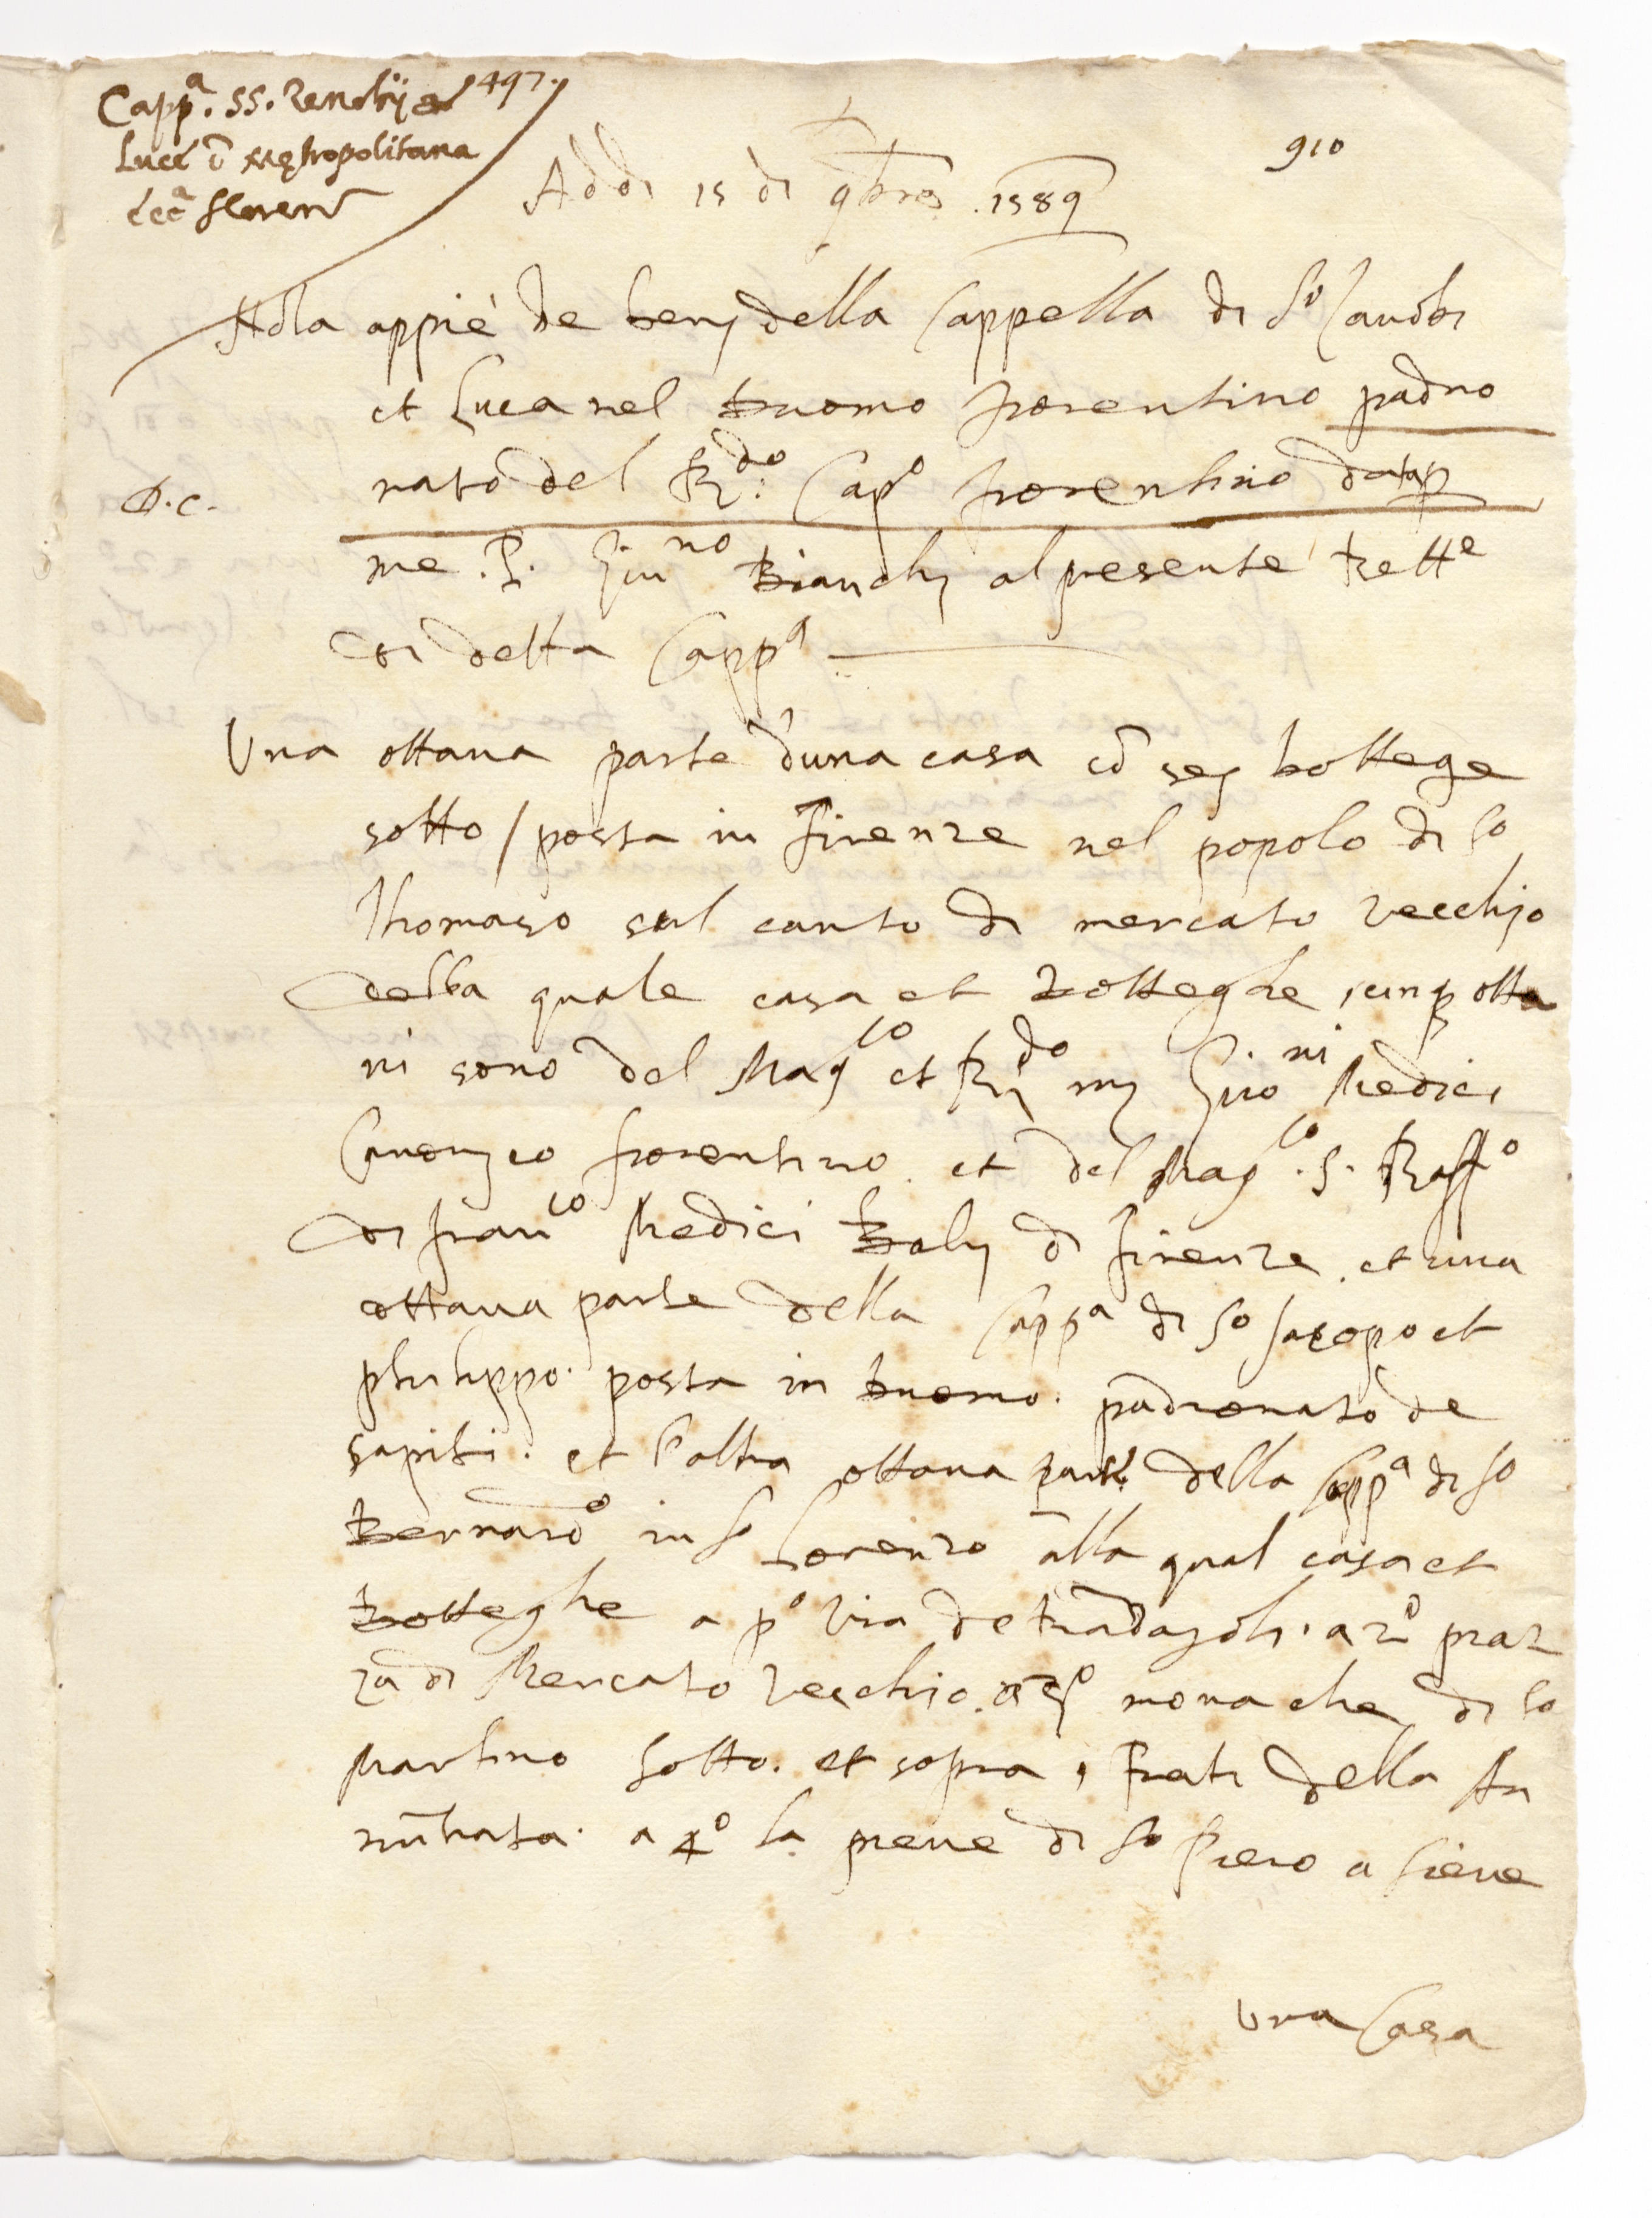 Capp.ª SS. Zenobij et 497.
Lucę ī Metropolitana
Ecc.ª floren.
910
Addi 15 di 9bre . 1589
Nōta appiè de beni della Cappella di S.º Zanobi
et Luca nel Duomo fiorentino padro
nato del R.do Cap.º fiorentino data p
D.C.
me . P. Giu.no Bianchi al presente Rett.e
di detta Capp.ª
Una ottava parte d'una casa cō sej bottege
sotto / posta in Firenze nel popolo di S.º
Thomaso sul canto di mercato vecchio
della quale casa et botteghe , cinq otta
vi sono del Mag.co et R.do mṣ Gio.ni Medici
Canonico fiorentino . et del Mag.co . S. Raff.º
di Fran.co Medici Balj di Firenze . et una
ottava parte della Capp.ª di S.º Jacopo et
philippo . posta in Duomo . padronato de
sapiti . et l'altra ottava parte della Capp.ª di S.º
Bernardº in S.º Lorenzo alla qual casa et
botteghe a pº via de ferravecchi a 2º piaz
za di Mercato vecchio . a 3º monache di S.º
Martino sotto . et sopra , Frati della An
nūtiata . a 4º la pieve di S.º Piero a Sieve
Una Casa